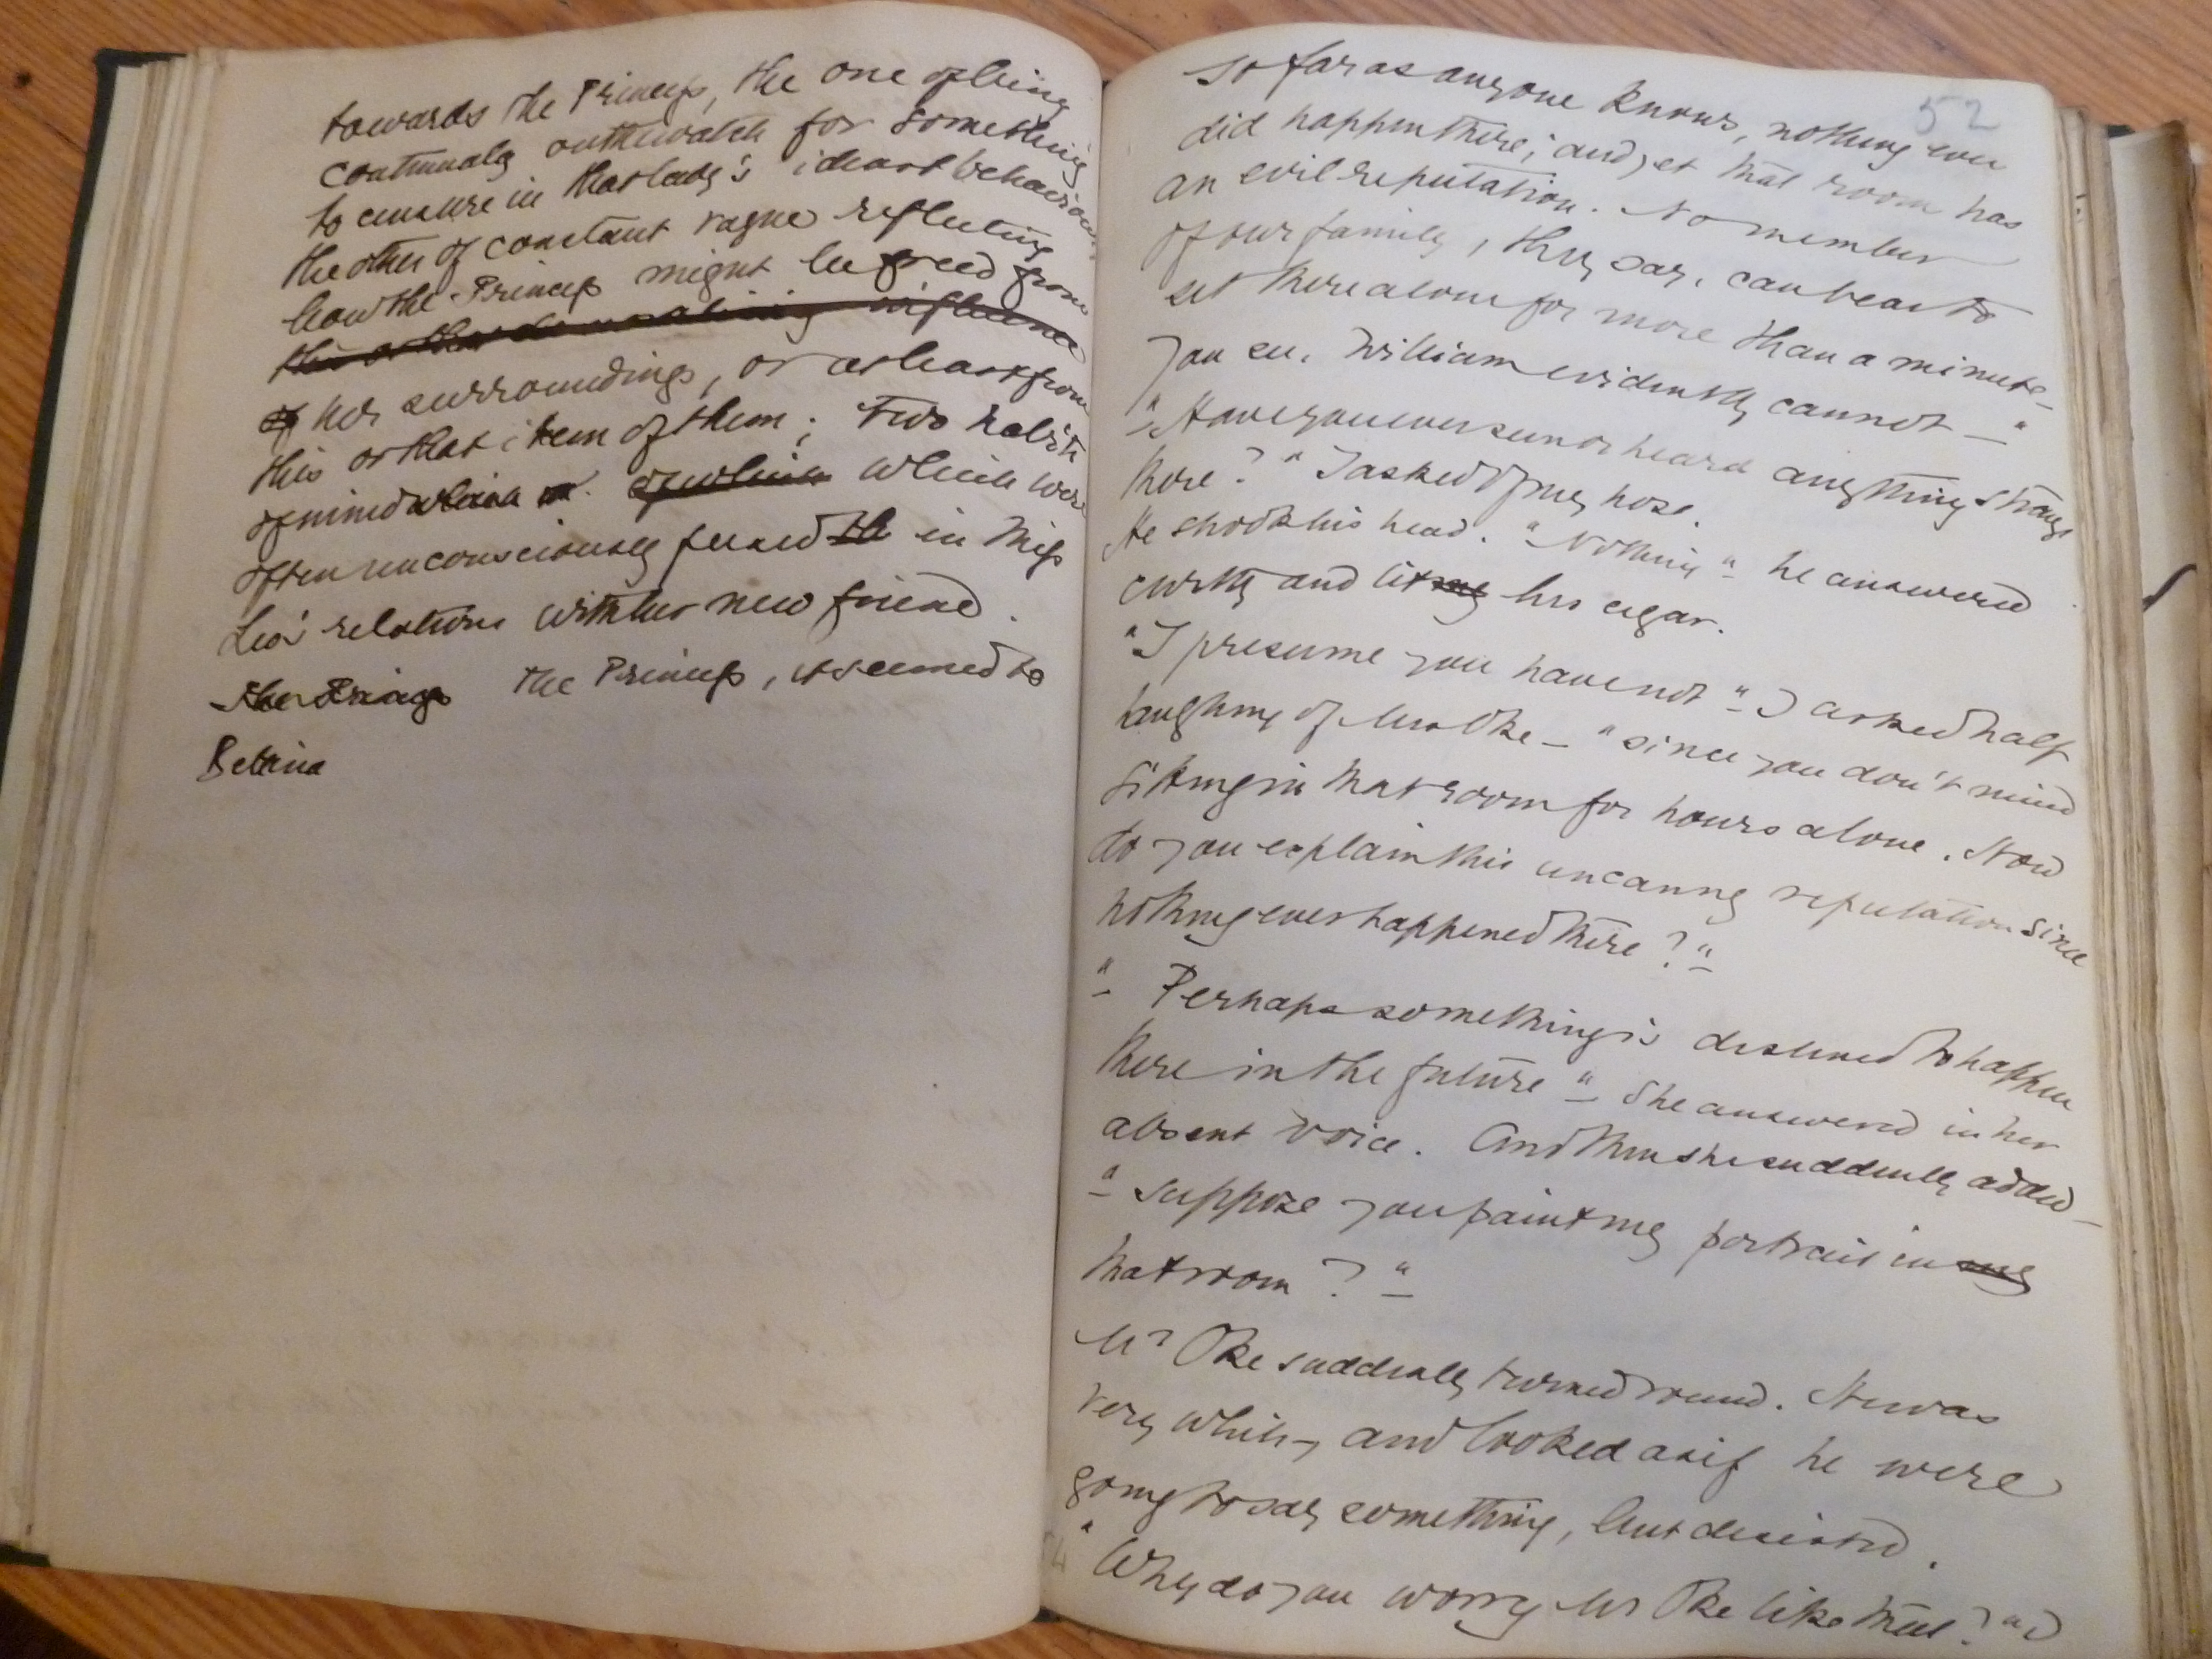 towards the Princess, the one of being
continually on the watch for something
to censure in that lady's ideas & behaviour
the other of constant vague reflecting
how the Princess might be freed from
this or that demoralising influence
of her surroundings, or at least from
this or that item of them; two habits
of mind which of which which were
often unconsciously forced in Miss
relations with her new friend.
The Princess The Princess, it seemed to
Bettina
52
so far as anyone knows, nothing ever
did happen there; and yet that room has
an evil reputation. No member
of our family, they say, can bear to
sit there alone for more than a minute –
You see, William evidently cannot —"
"Have you ever seen or heard anything strange
there?" I asked of my host.
He shook his head. "Nothing" he answered
curtly and lit his cigar.
"I presume you have not" I asked half
laughing of Mrs Oke – "since you don't mind
sitting in that room for hours alone. How
do you explain this uncanny reputation since
nothing ever happened there?"
"Perhaps something is destined to happen
there in the future" she answered in her
absent voice. And then she suddenly added –
"Suppose you paint my portrait in my
that room?"
Mr Oke suddenly turned round. He was
very white, and looked as if he were
going to say something, but desisted.
"Why do you worry Mr Oke like that?" I